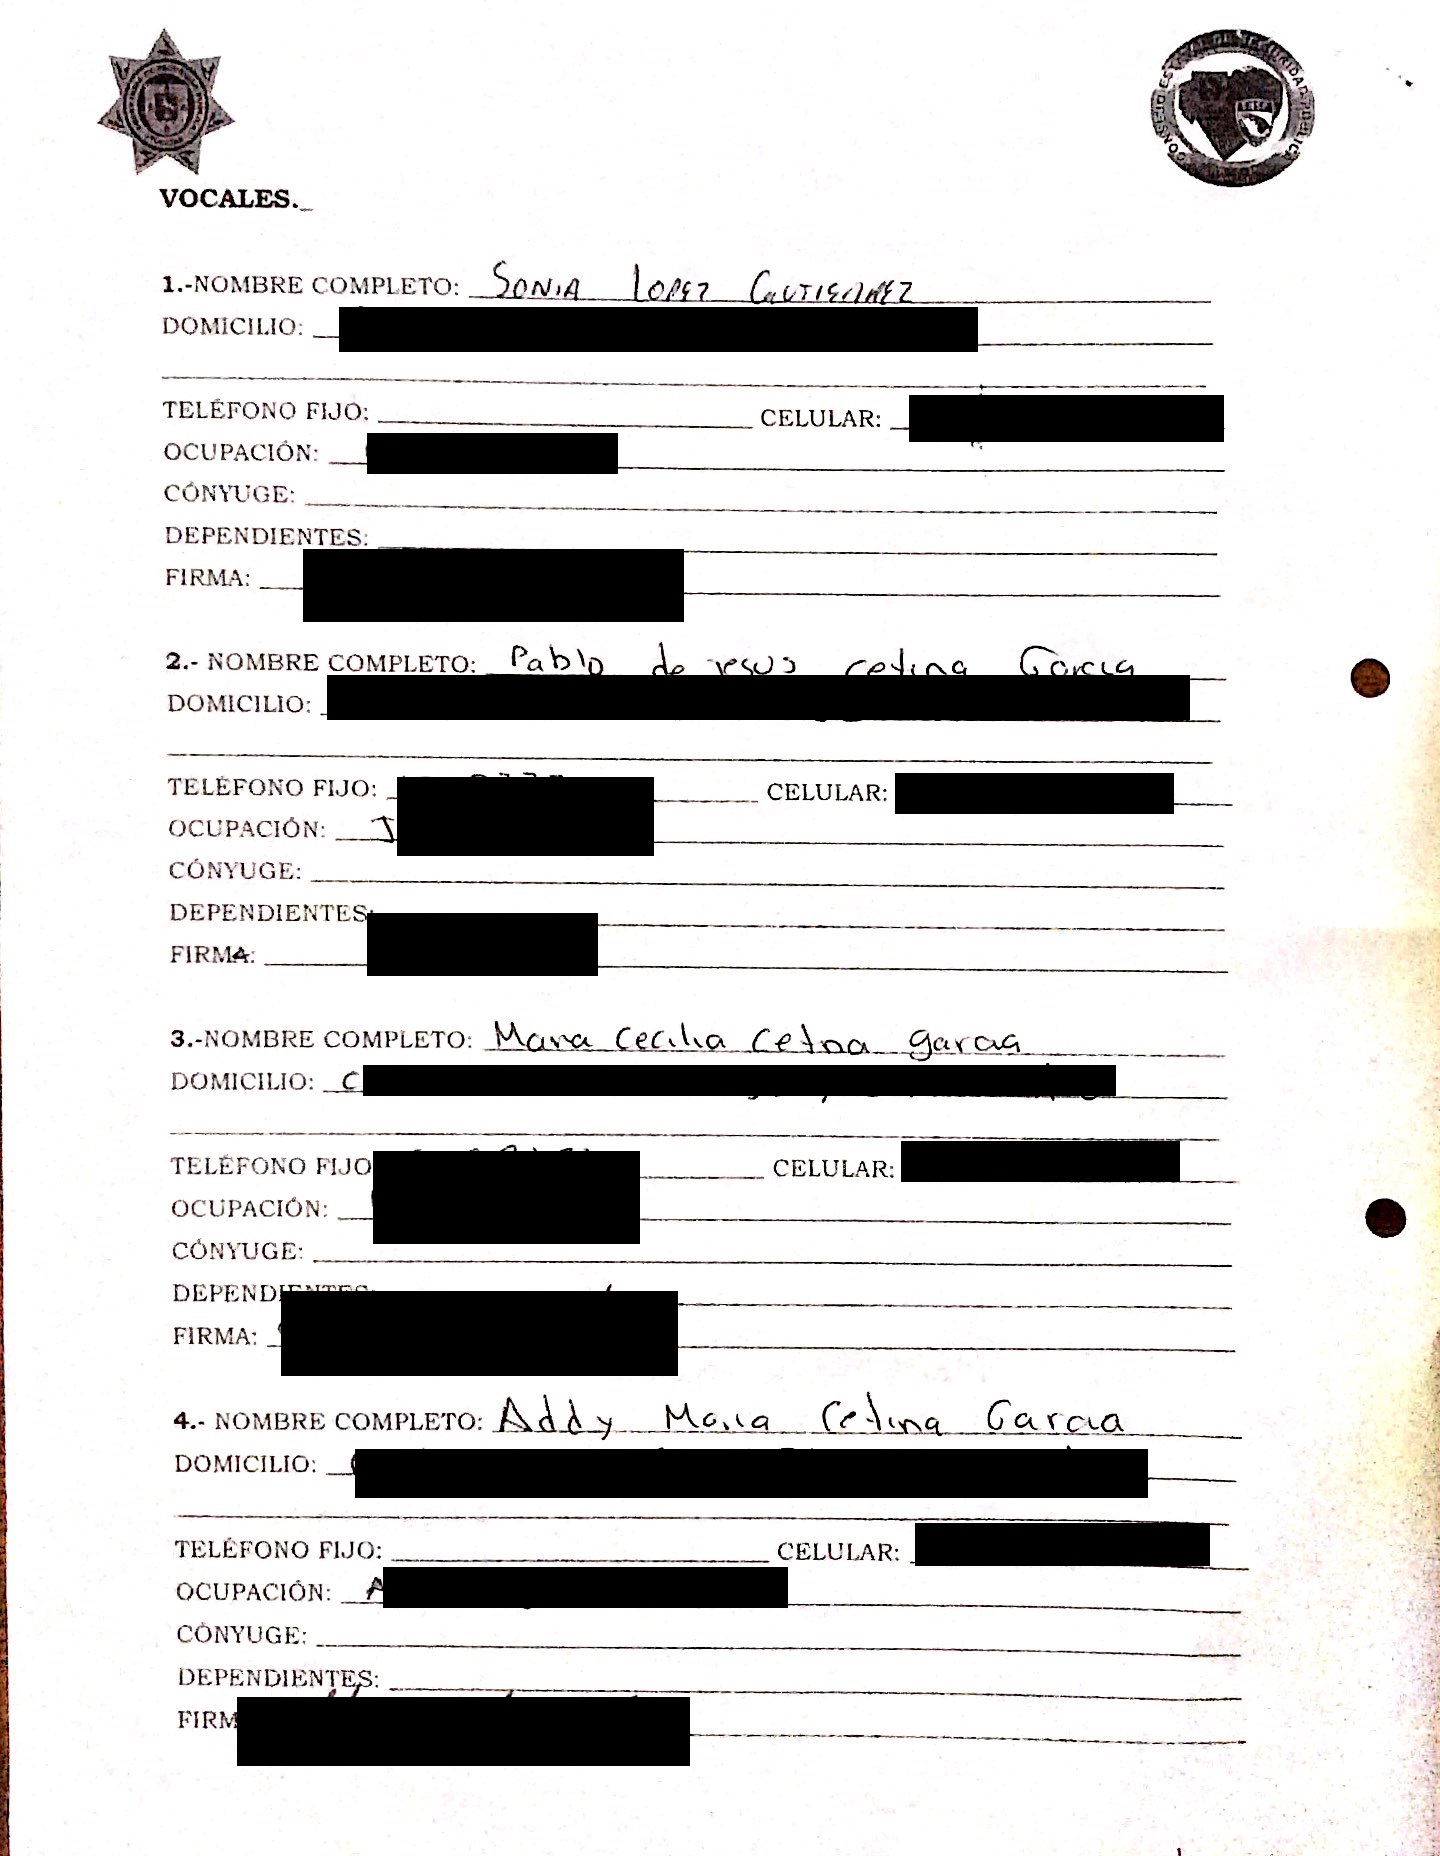 CONSEJO ESTATAL DE SEGURIDAD PUBLICA
VOCALES._
1.-NOMBRE COMPLETO: SONIA LOPEZ GUTIERREZ
DOMICILIO:
TELÉFONO FIJO: CELULAR:
OCUPACIÓN:
CÓNYUGE:
DEPENDIENTES:
FIRMA:
2.- NOMBRE COMPLETO: Pablo de Jesus cetina Garcia
DOMICILIO:
TELÉFONO FIJO: CELULAR:
OCUPACIÓN: J
CÓNYUGE:
DEPENDIENTES:
FIRMA:
3.-NOMBRE COMPLETO: Maria Cecilia Cetina garcia
DOMICILIO: C
TELÉFONO FIJO CELULAR:
OCUPACIÓN:
CÓNYUGE:
DEPENDIENTES:
FIRMA:
4.- NOMBRE COMPLETO: Addy Maria Cetina Garcia
DOMICILIO:
TELÉFONO FIJO: CELULAR:
OCUPACIÓN: A
CÓNYUGE:
DEPENDIENTES:
FIRM